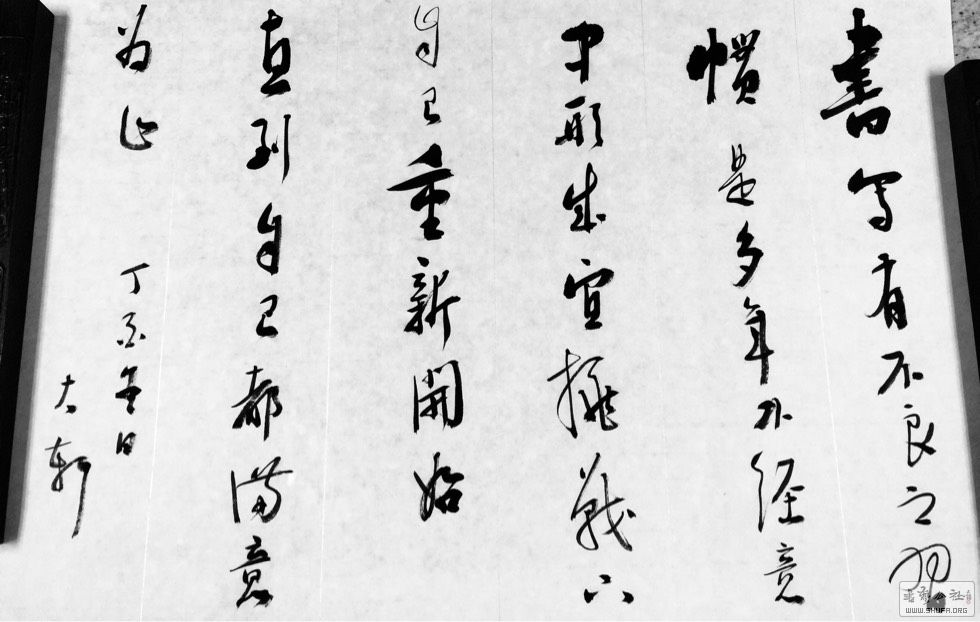 書寫有不良之習
慣是多年不經意
中形成宜挑戰下
自己重新開始
直到自己都滿意
为止
丁酉冬日
大軒
WWW.SHUFA.ORG